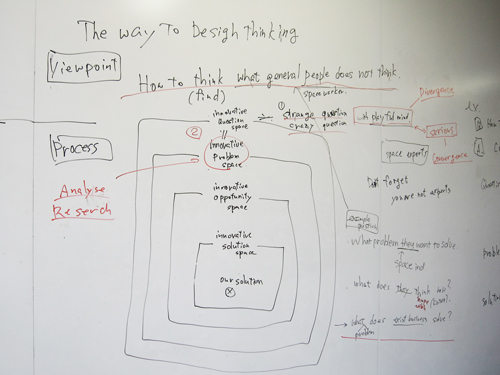 The way To Desigh thinking
Viewpoint
How to think what general people does not think.
(find)
space worker.
Divergence
innovative
question
space
① strange question
crazy question
with playful mind
②
serious
Process
innovative
problem
space
space experts
convergence
Analyse
Reserch
Don't forget
you are not experts
innovative
opportunity
space
example
questions
What problem they want to solve
space ind
innovative
solution
space
our solution
what does they think now?
→ what does exist business solve?
problem